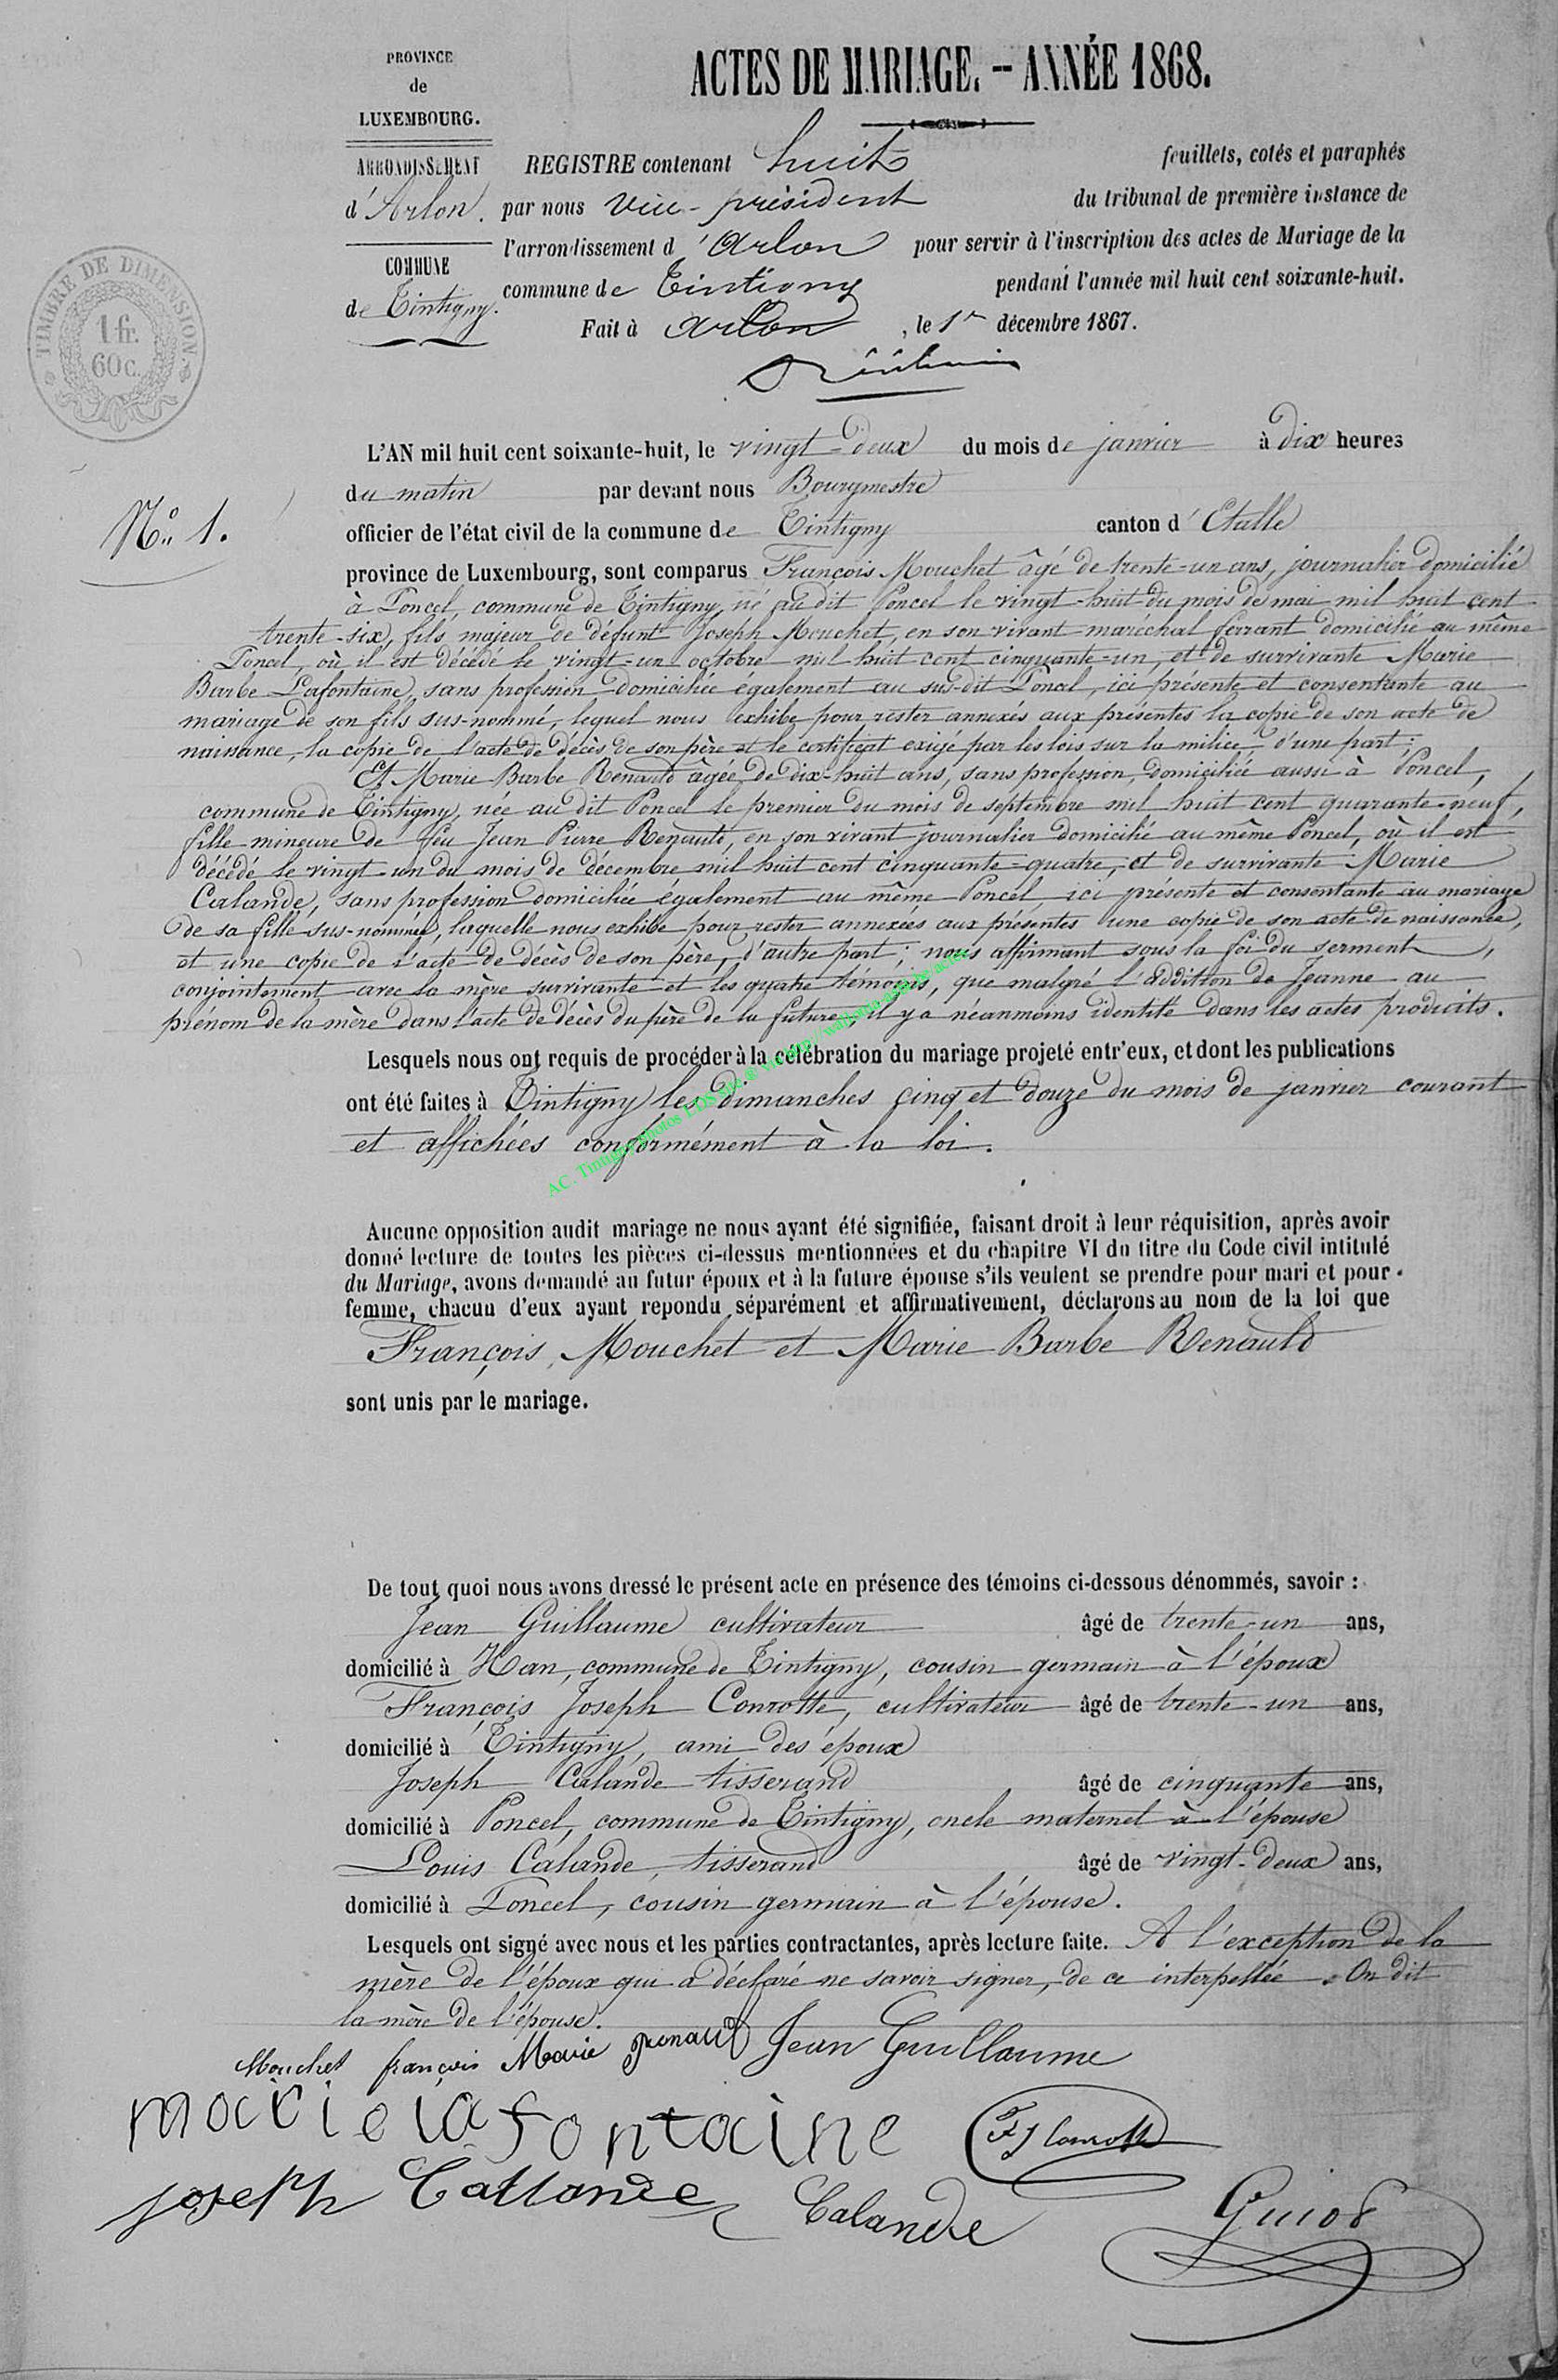 PROVINCE
de
LUXEMBOURG.
ARRONDISSEMENT
d'Arlon.
COMMUNE
de Tintigny.
TIMBRE DE DIMENSION.
1 fr.
60c.
ACTES DE MARIAGE. – ANNÉE 1868.
REGISTRE contenant huit feuillets, cotés et paraphés
par nous Vice-président du tribunal de première instance de
l'arrondissement d'Arlon pour servir à l'inscription des actes de Mariage de la
commune de Tintigny pendant l'année mil huit cent soixante-huit.
Fait à Arlon, le 1er décembre 1867.
N° 1.
L'AN mil huit cent soixante-huit, le vingt-deux du mois de janvier à dix heures
du matin par devant nous Bourgmestre
officier de l'état civil de la commune de Tintigny canton d'Etalle
province de Luxembourg, sont comparus François Mouchet âgé de trente-un ans, journalier domicilié
à Poncel, commune de Tintigny, né au dit Poncel le vingt-huit du mois de mai mil huit cent
trente-six, fils majeur de défunt Joseph Mouchet, en son vivant maréchal ferrant domicilié au même
Poncel, où il est décédé le vingt-un octobre mil huit cent cinquante-un, et de survivante Marie
Barbe Lafontaine, sans profession domiciliée également au sus-dit Poncel, ici présente et consentante au
mariage de son fils sus-nommé, lequel nous exhibe pour rester annexés aux présentes la copie de son acte de
naissance, la copie de l'acte de décès de son père et le certificat exigé par les lois sur la milice, d'une part;
Et Marie Barbe Renauld âgée de dix-huit ans, sans profession, domiciliée aussi à Poncel,
commune de Tintigny, née au dit Poncel le premier du mois de septembre mil huit cent quarante-neuf,
fille mineure de feu Jean Pierre Renauld, en son vivant journalier domicilié au même Poncel, où il est
décédé le vingt-un du mois de décembre mil huit cent cinquante-quatre, et de survivante Marie
Calande, sans profession domiciliée également au même Poncel ici présente et consentante au mariage
de sa fille sus-nommée, laquelle nous exhibe pour rester annexées aux présentes une copie de son acte de naissance,
et une copie de l'acte de décès de son père, d'autre part; nous affirmant sous la foi du serment,
conjointement avec la mère survivante et les quatre témoins, que malgré l'addition de Jeanne au
prénom de la mère dans l'acte de décès du père de la future, il y a néanmoins identité dans les actes produits.
Lesquels nous ont requis de procéder à la célébration du mariage projeté entr'eux, et dont les publications
ont été faites à Tintigny les dimanches cinq et douze du mois de janvier courant
et affichées conformément à la loi.
AC. Tintigny photos
Aucune opposition audit mariage ne nous ayant été signifiée, faisant droit à leur réquisition, après avoir
donné lecture de toutes les pièces ci-dessus mentionnées et du chapitre VI du titre du Code civil intitulé
du Mariage, avons demandé au futur époux et à la future épouse s'ils veulent se prendre pour mari et pour
femme, chacun d'eux ayant repondu séparément et affirmativement, déclarons au nom de la loi que
François Mouchet et Marie Barbe Renauld
sont unis par le mariage.
De tout quoi nous avons dressé le présent acte en présence des témoins ci-dessous dénommés, savoir :
Jean Guillaume cultivateur âgé de trente-un ans,
domicilié à Han, commune de Tintigny, cousin germain à l'époux
François Joseph Conrotte, cultivateur âgé de trente-un ans,
domicilié à Tintigny, ami des époux
Joseph Calande tisserand âgé de cinquante ans,
domicilié à Poncel, commune de Tintigny, oncle maternel à l'épouse
Louis Calande, tisserand âgé de vingt-deux ans,
domicilié à Poncel, cousin germain à l'épouse.
Lesquels ont signé avec nous et les parties contractantes, après lecture faite. A l'exception de la
mère de l'époux qui a déclaré ne savoir signer, de ce interpellée. On dit
la mère de l'épouse.
Mouchet françois Marie Renauld Jean Guillaume
marie lafontaine FJ Conrotte
joseph Callande Calande Guiot